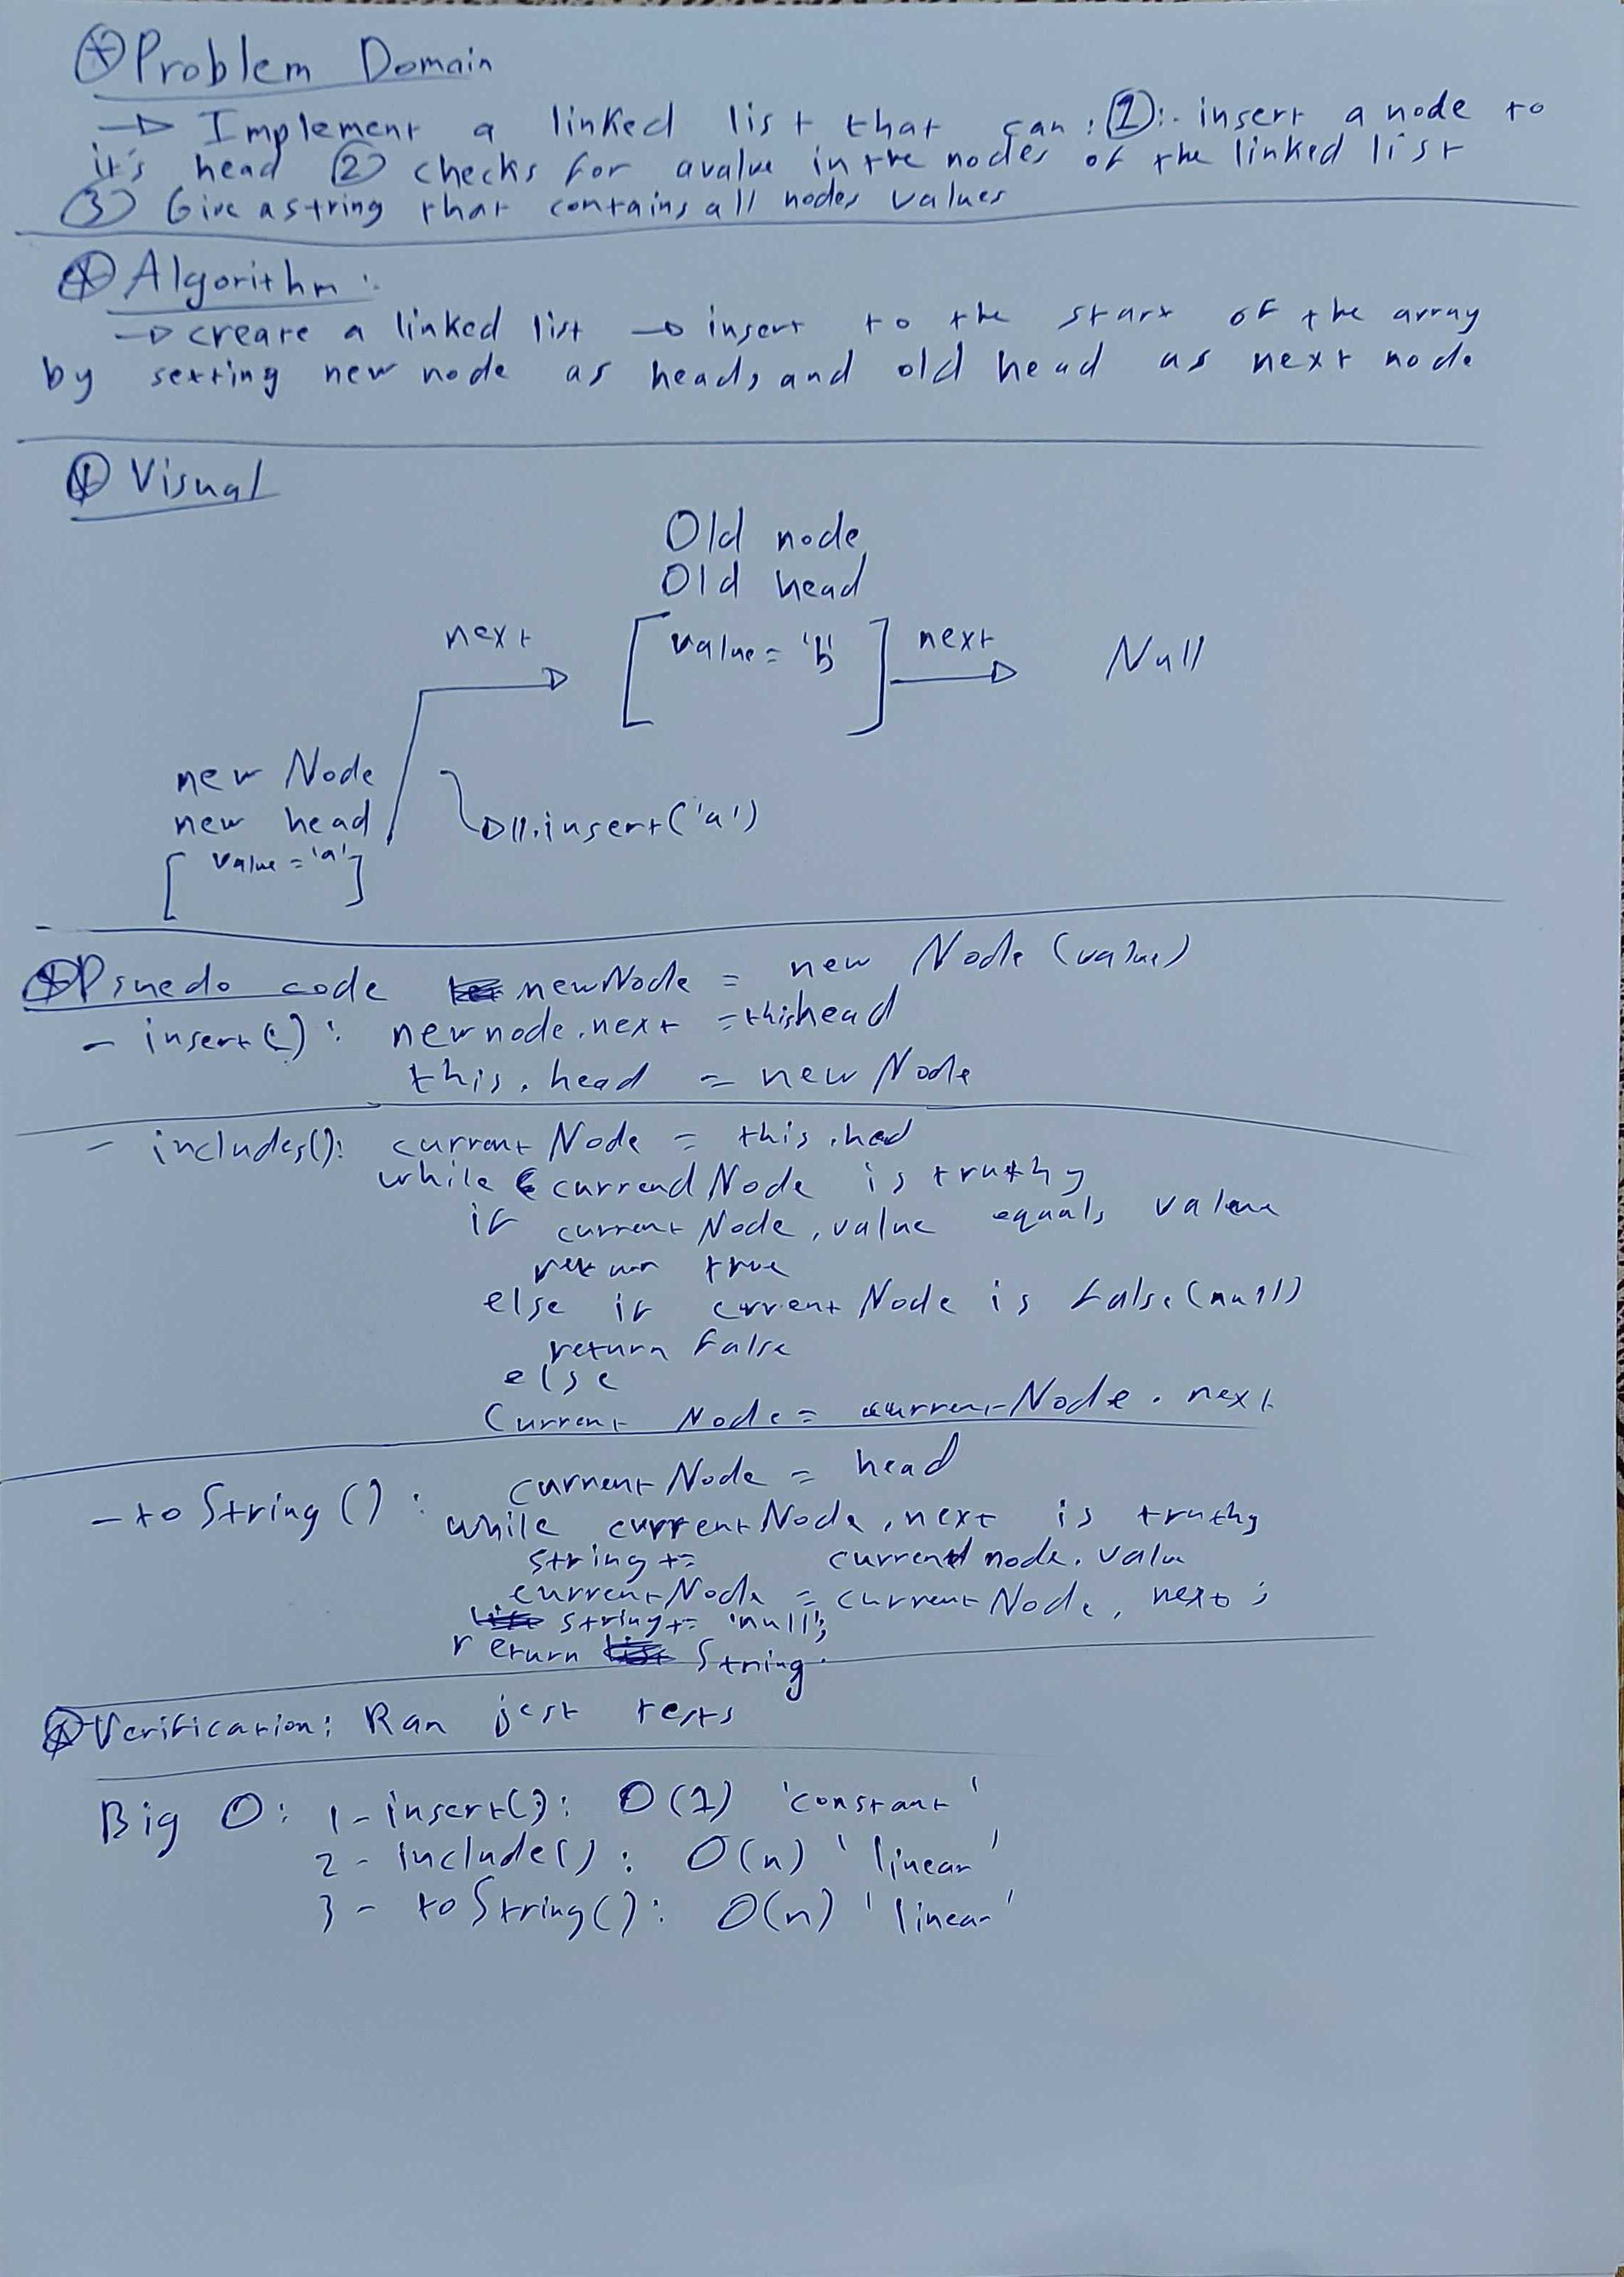 Problem Domain
→ Implement a linked list that can : ①:- insert a node to
it's head ② checks for avalue in the nodes of the linked list
③ Give a string that contains all nodes values
Algorithm :
→ create a linked list → insert to the start of the array
by setting new node as head, and old head as next node
Visual
Old node,
Old head
next [ value = 'b' ] next Null
new Node
new head
ll.insert('a')
[ value = 'a' ]
Psuedo code newNode = new Node (value)
- insert(): newnode.next = thishead
this.head = new Node
- includes(): current Node = this.head
while currend Node is truthy
if current Node.value equals value
return true
else if current Node is false (null)
return false
else
Current Node = current Node . next
- to String () : current Node = head
while current Node.next is truthy
string += current node. valu
current Node = current Node. next ;
string += 'null';
return String.
Verification: Ran jest tests
Big O: 1 - insert(): O(1) 'constant'
2 - include() : O(n) 'linear'
3 - to String(): O(n) 'linear'